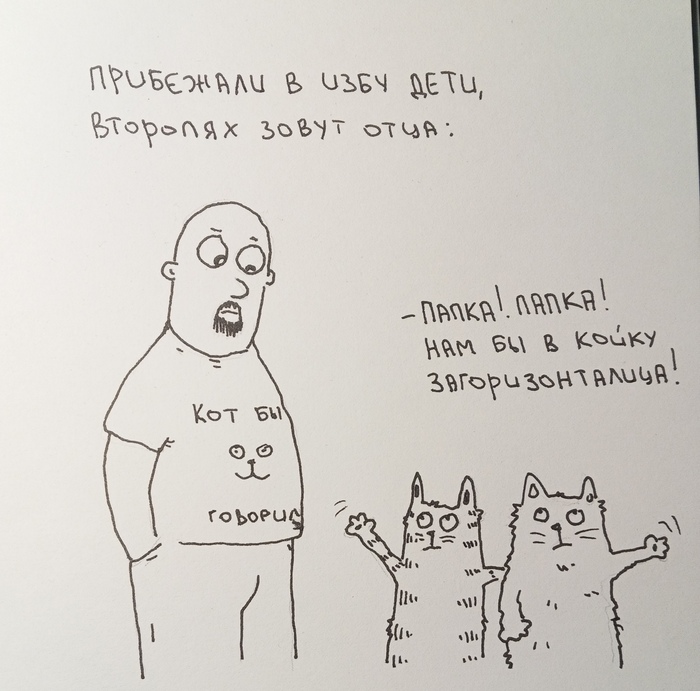 ПРИБЕЖАЛИ В ИЗБУ ДЕТИ,
ВТОРОПЯХ ЗОВУТ ОТЦА:
-ПАПКА! ПАПКА!
НАМ БЫ В КОЙКУ
ЗАГОРИЗОНТАЛИЦА!
КОТ БЫ
ГОВОРИЛ